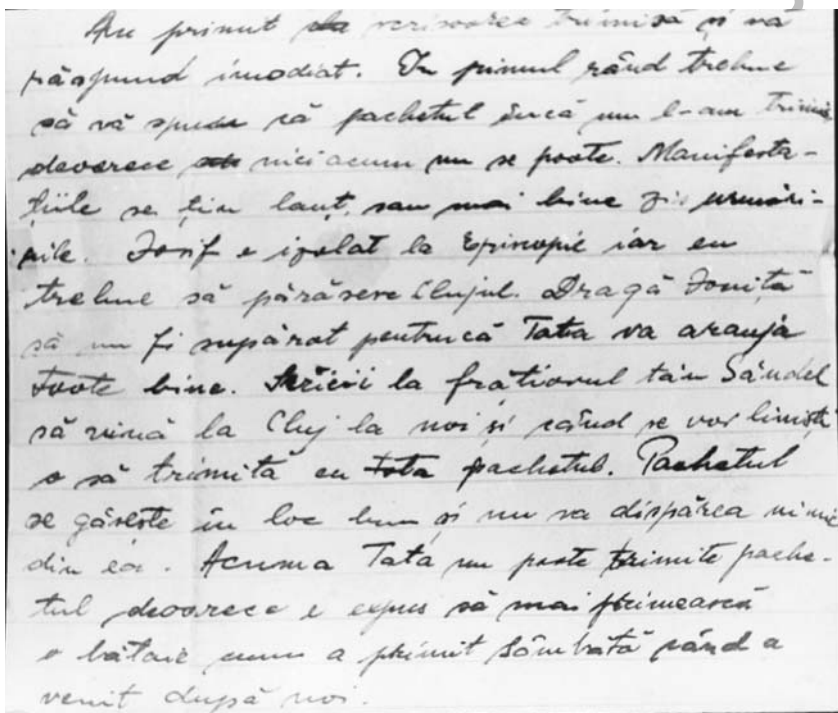 Am primit scrisoarea trimisă și va
răspund imediat. In primul rând trebue
să vă spun că pachetul încă nu l-am trimis
deoarece nici acum nu se poate. Manifesta-
țiile se țin lanț, sau mai bine zis urmări-
rile. Iosif e izolat la Episcopie iar eu
trebue să părăsesc Clujul. Dragă Ioniță
să nu fi supărat pentrucă Tata va aranja
toate bine. Scrieii la frățiorul tău Săndel
să vină la Cluj la noi și când se vor liniști
o să trimită cu Tata pachetul. Pachetul
se găsește în loc bun și nu va dispărea nimic
din ea. Acuma Tata nu poate trimite pache-
tul deoarece e expus să mai primească
o bătaie cum a primit Sâmbătă când a
venit după noi.